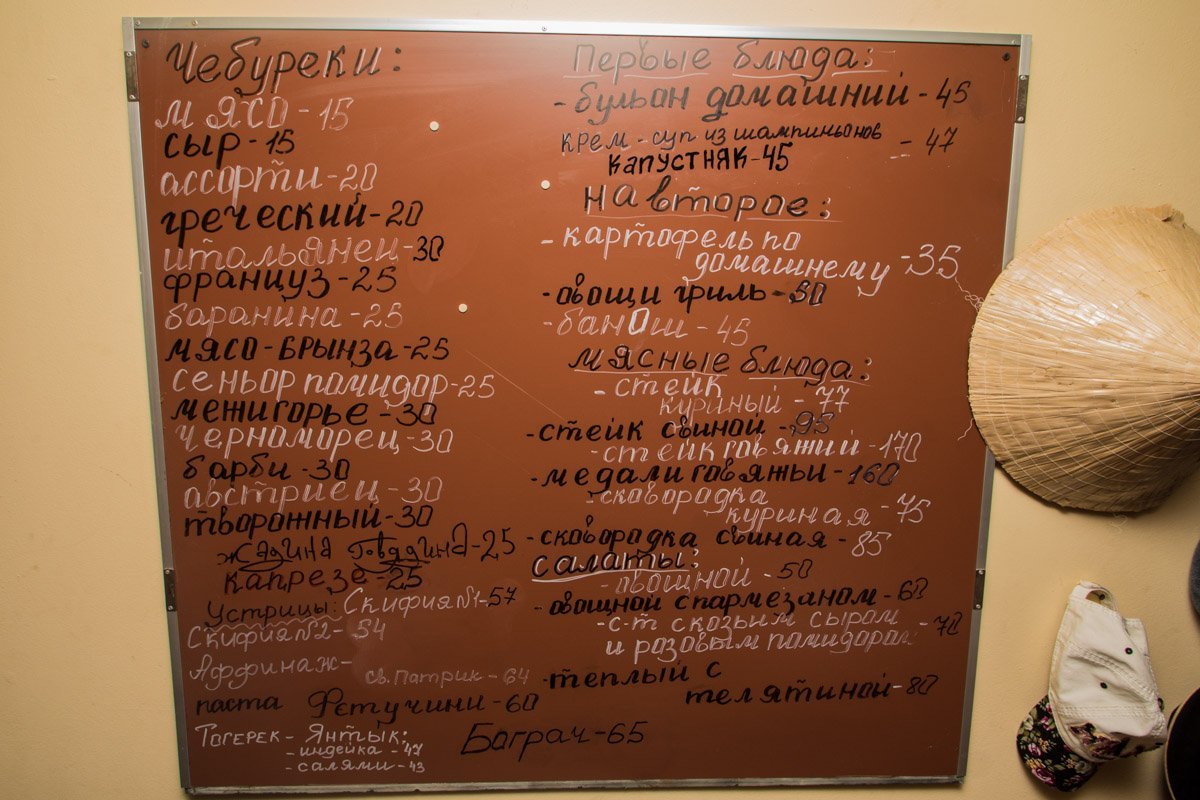 Чебуреки:
мясо - 15
сыр - 15
ассорти - 20
греческий - 20
итальянец - 30
француз - 25
баранина - 25
мясо - брынза - 25
сеньор помидор - 25
межигорье - 30
черноморец - 30
барби - 30
австриец - 30
творожный - 30
говядина - 25
капрезе - 25
Устрицы: Скифия №1 - 57
Скифия №2 - 54
Аффинаж -
св. Патрик - 64
паста Фетучини - 60
Тогерек - Янтык:
- индейка - 47
- салями - 43
Первые блюда:
- бульон домашний - 45
крем - суп из шампиньонов - 47
капустняк - 45
на второе:
- картофель по
домашнему - 35
- овощи гриль - 50
- банош - 45
мясные блюда:
- стейк
куриный - 77
- стейк свиной - 95
- стейк говяжий - 170
- медали говяжьи - 160
- сковородка
куриная - 75
- сковородка свиная - 85
салаты:
- овощной - 50
- овощной с пармезаном - 60
- с-т с козьим сыром
и розовым помидором - 70
- теплый с
телятиной - 80
Бограч - 65